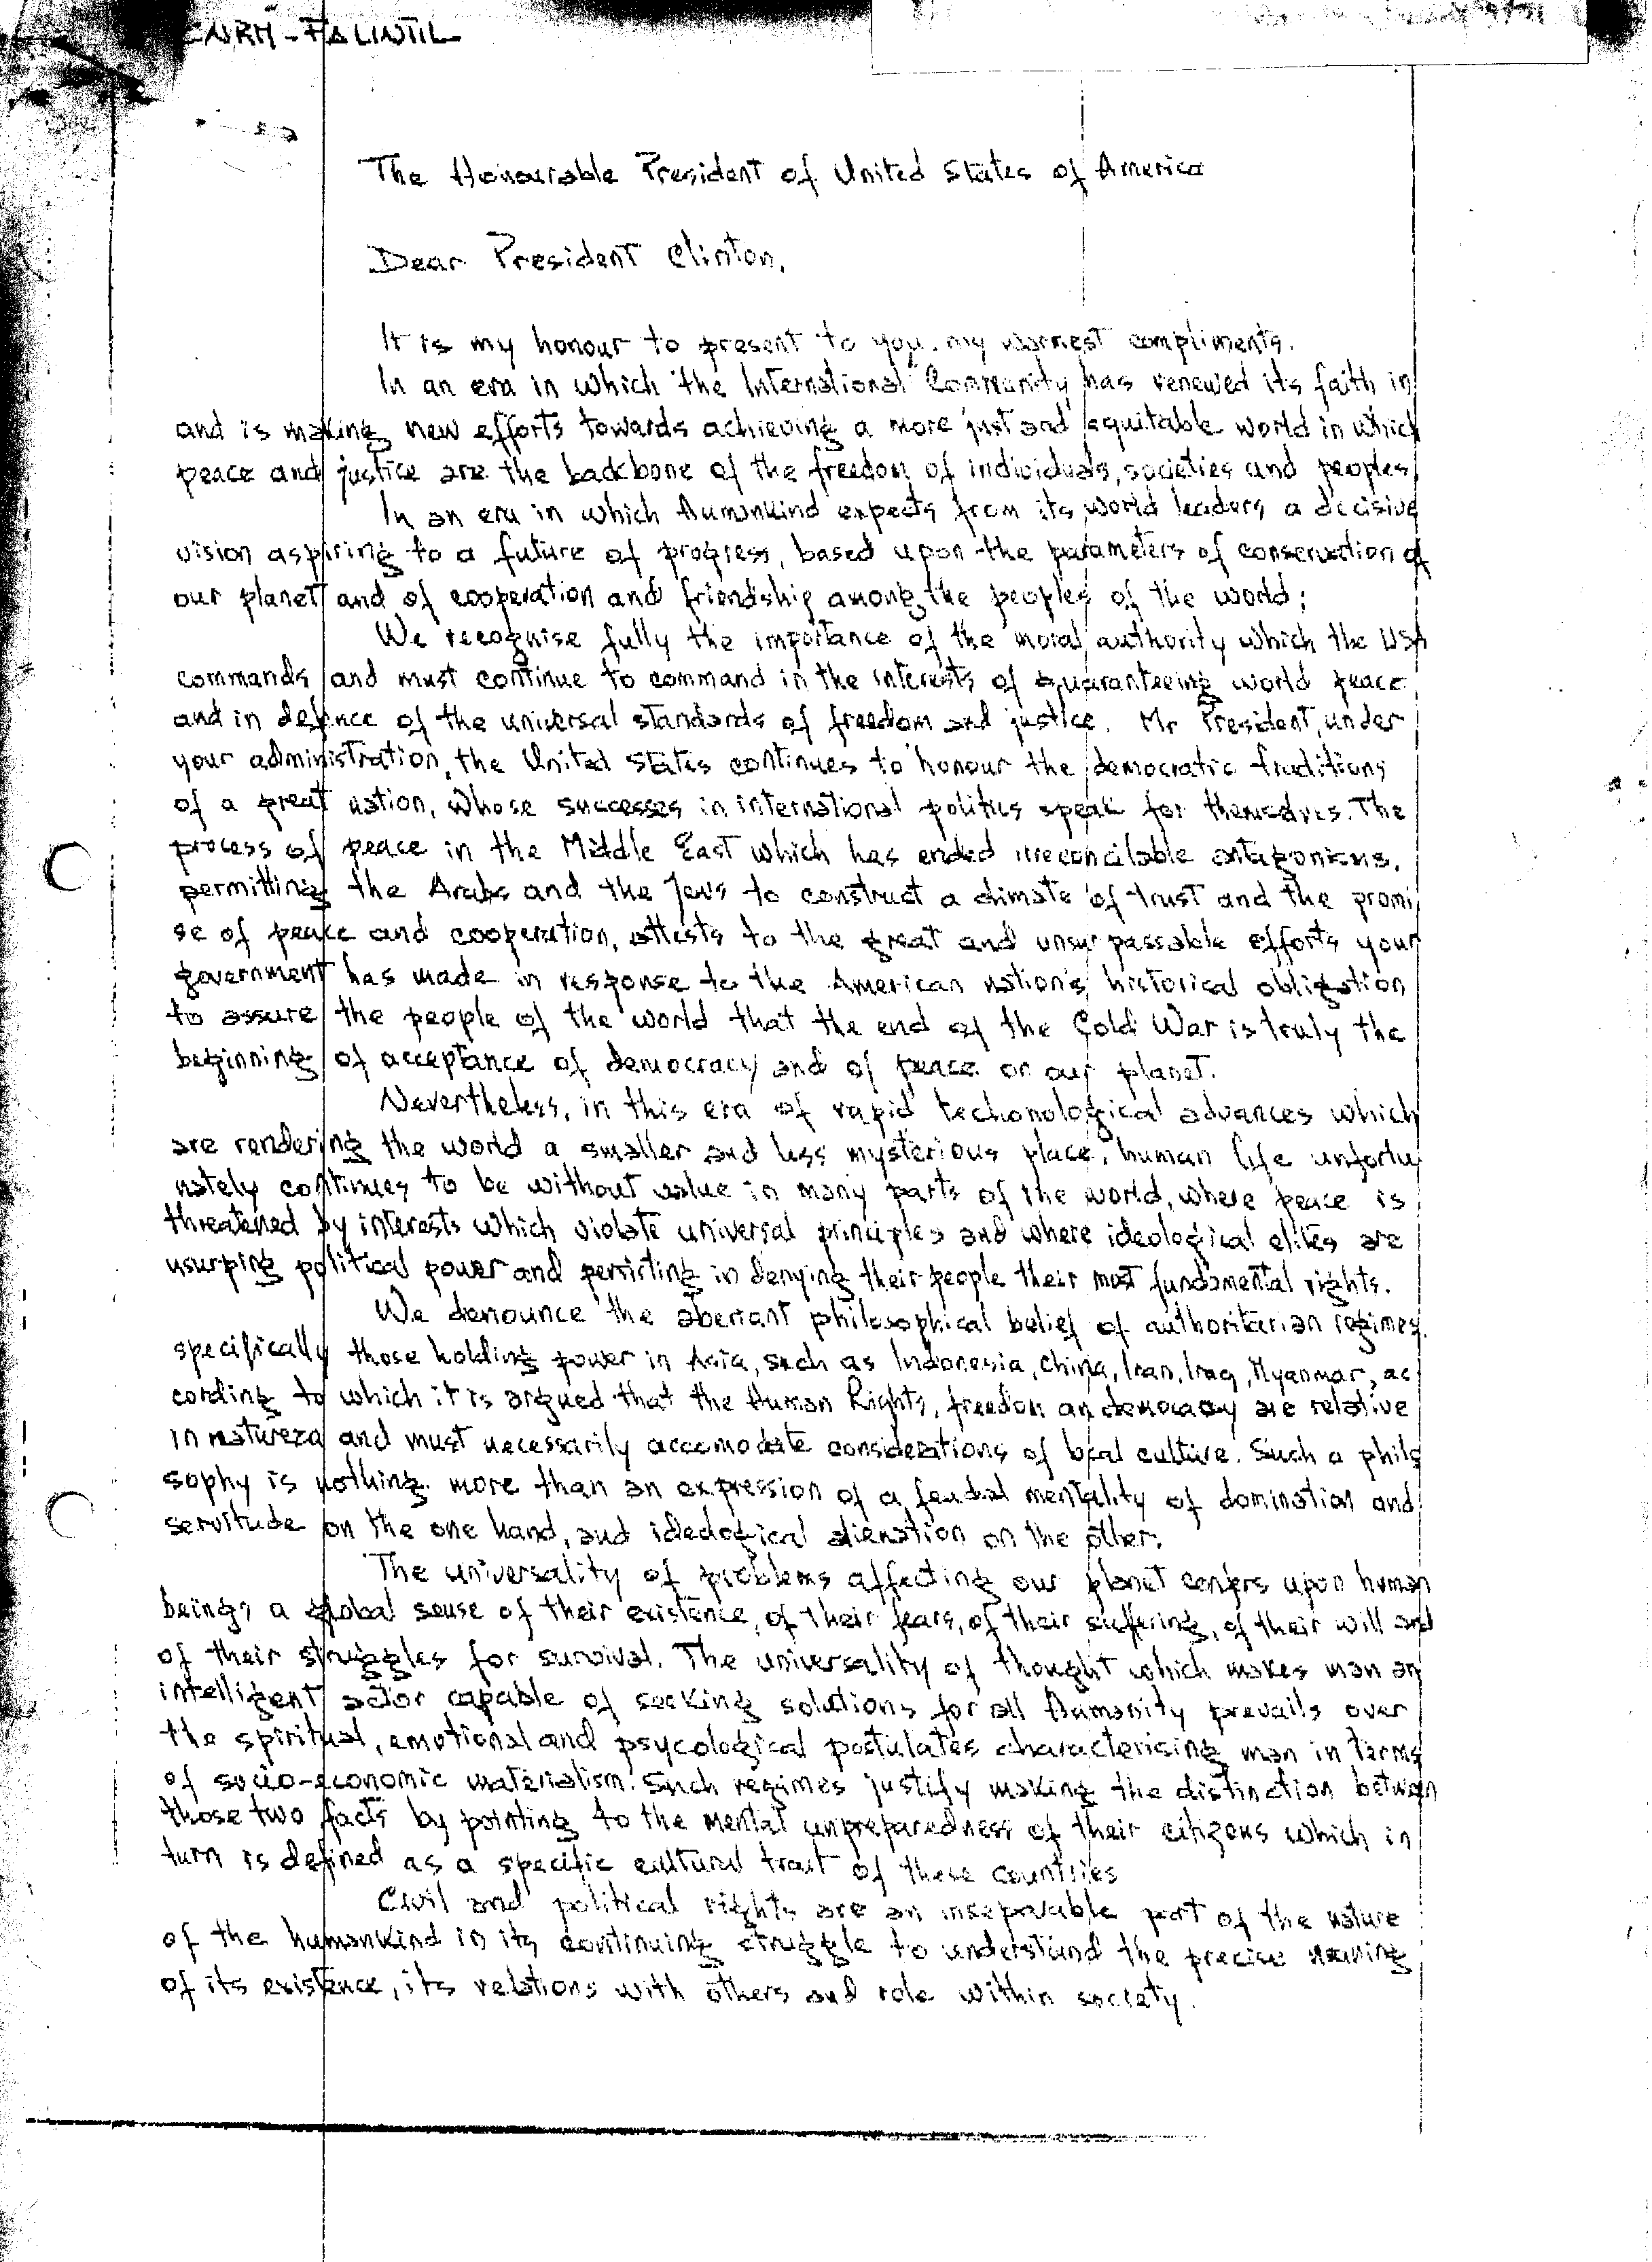 CNRM - FALINTIL
The Honourable President of United States of America
Dear President Clinton,
It is my honour to present to you, my warmest compliments.
In an era in which the International Community has renewed its faith in
and is making new efforts towards achieving a more just and equitable world in which
peace and justice are the backbone of the freedom of individuals, societies and peoples
In an era in which Humankind expects from its world leaders a decisive
vision aspiring to a future of progress, based upon the parameters of conservation of
our planet and of cooperation and friendship among the peoples of the world;
We recognise fully the importance of the moral authority which the USA
commands and must continue to command in the interests of guaranteeing world peace
and in defence of the universal standards of freedom and justice. Mr President, under
your administration, the United States continues to honour the democratic traditions
of a great nation, whose successes in international politics speak for themselves. The
process of peace in the Middle East which has ended irreconcilable antagonisms,
permitting the Arabs and the Jews to construct a climate of trust and the promi
se of peace and cooperation, attests to the great and unsurpassable efforts your
government has made in response to the American nation's historical obligation
to assure the people of the world that the end of the Cold War is truly the
beginning of acceptance of democracy and of peace on our planet.
Nevertheless, in this era of rapid techonological advances which
are rendering the world a smaller and less mysterious place, human life unfortu
nately continues to be without value in many parts of the world, where peace is
threatened by interests which violate universal principles and where ideological elites are
usurping political power and persisting in denying their people their most fundamental rights.
We denounce the aberrant philosophical belief of authoritarian regimes,
specifically those holding power in Asia, such as Indonesia, China, Iran, Iraq, Myanmar, ac
cording to which it is argued that the Human Rights, freedom an democracy are relative
in natureza and must necessarily accomodate considerations of local culture. Such a philo
sophy is nothing more than an expression of a feudal mentality of domination and
servitude on the one hand, and ideological alienation on the other.
The universality of problems affecting our planet confers upon human
beings a global sense of their existence, of their fears, of their suffering, of their will and
of their struggles for survival. The universality of thought which makes man an
intelligent actor capable of seeking solutions for all Humanity prevails over
the spiritual, emotional and psycological postulates characterising man in terms
of socio-economic materialism. Such regimes justify making the distinction betwen
those two facts by pointing to the mental unpreparedness of their citizens which in
turn is defined as a specific cultural trait of these countries
Civil and political rights are an inseparable part of the nature
of the humankind in its continuing struggle to understand the precise meaning
of its existence, its relations with others and role within society.